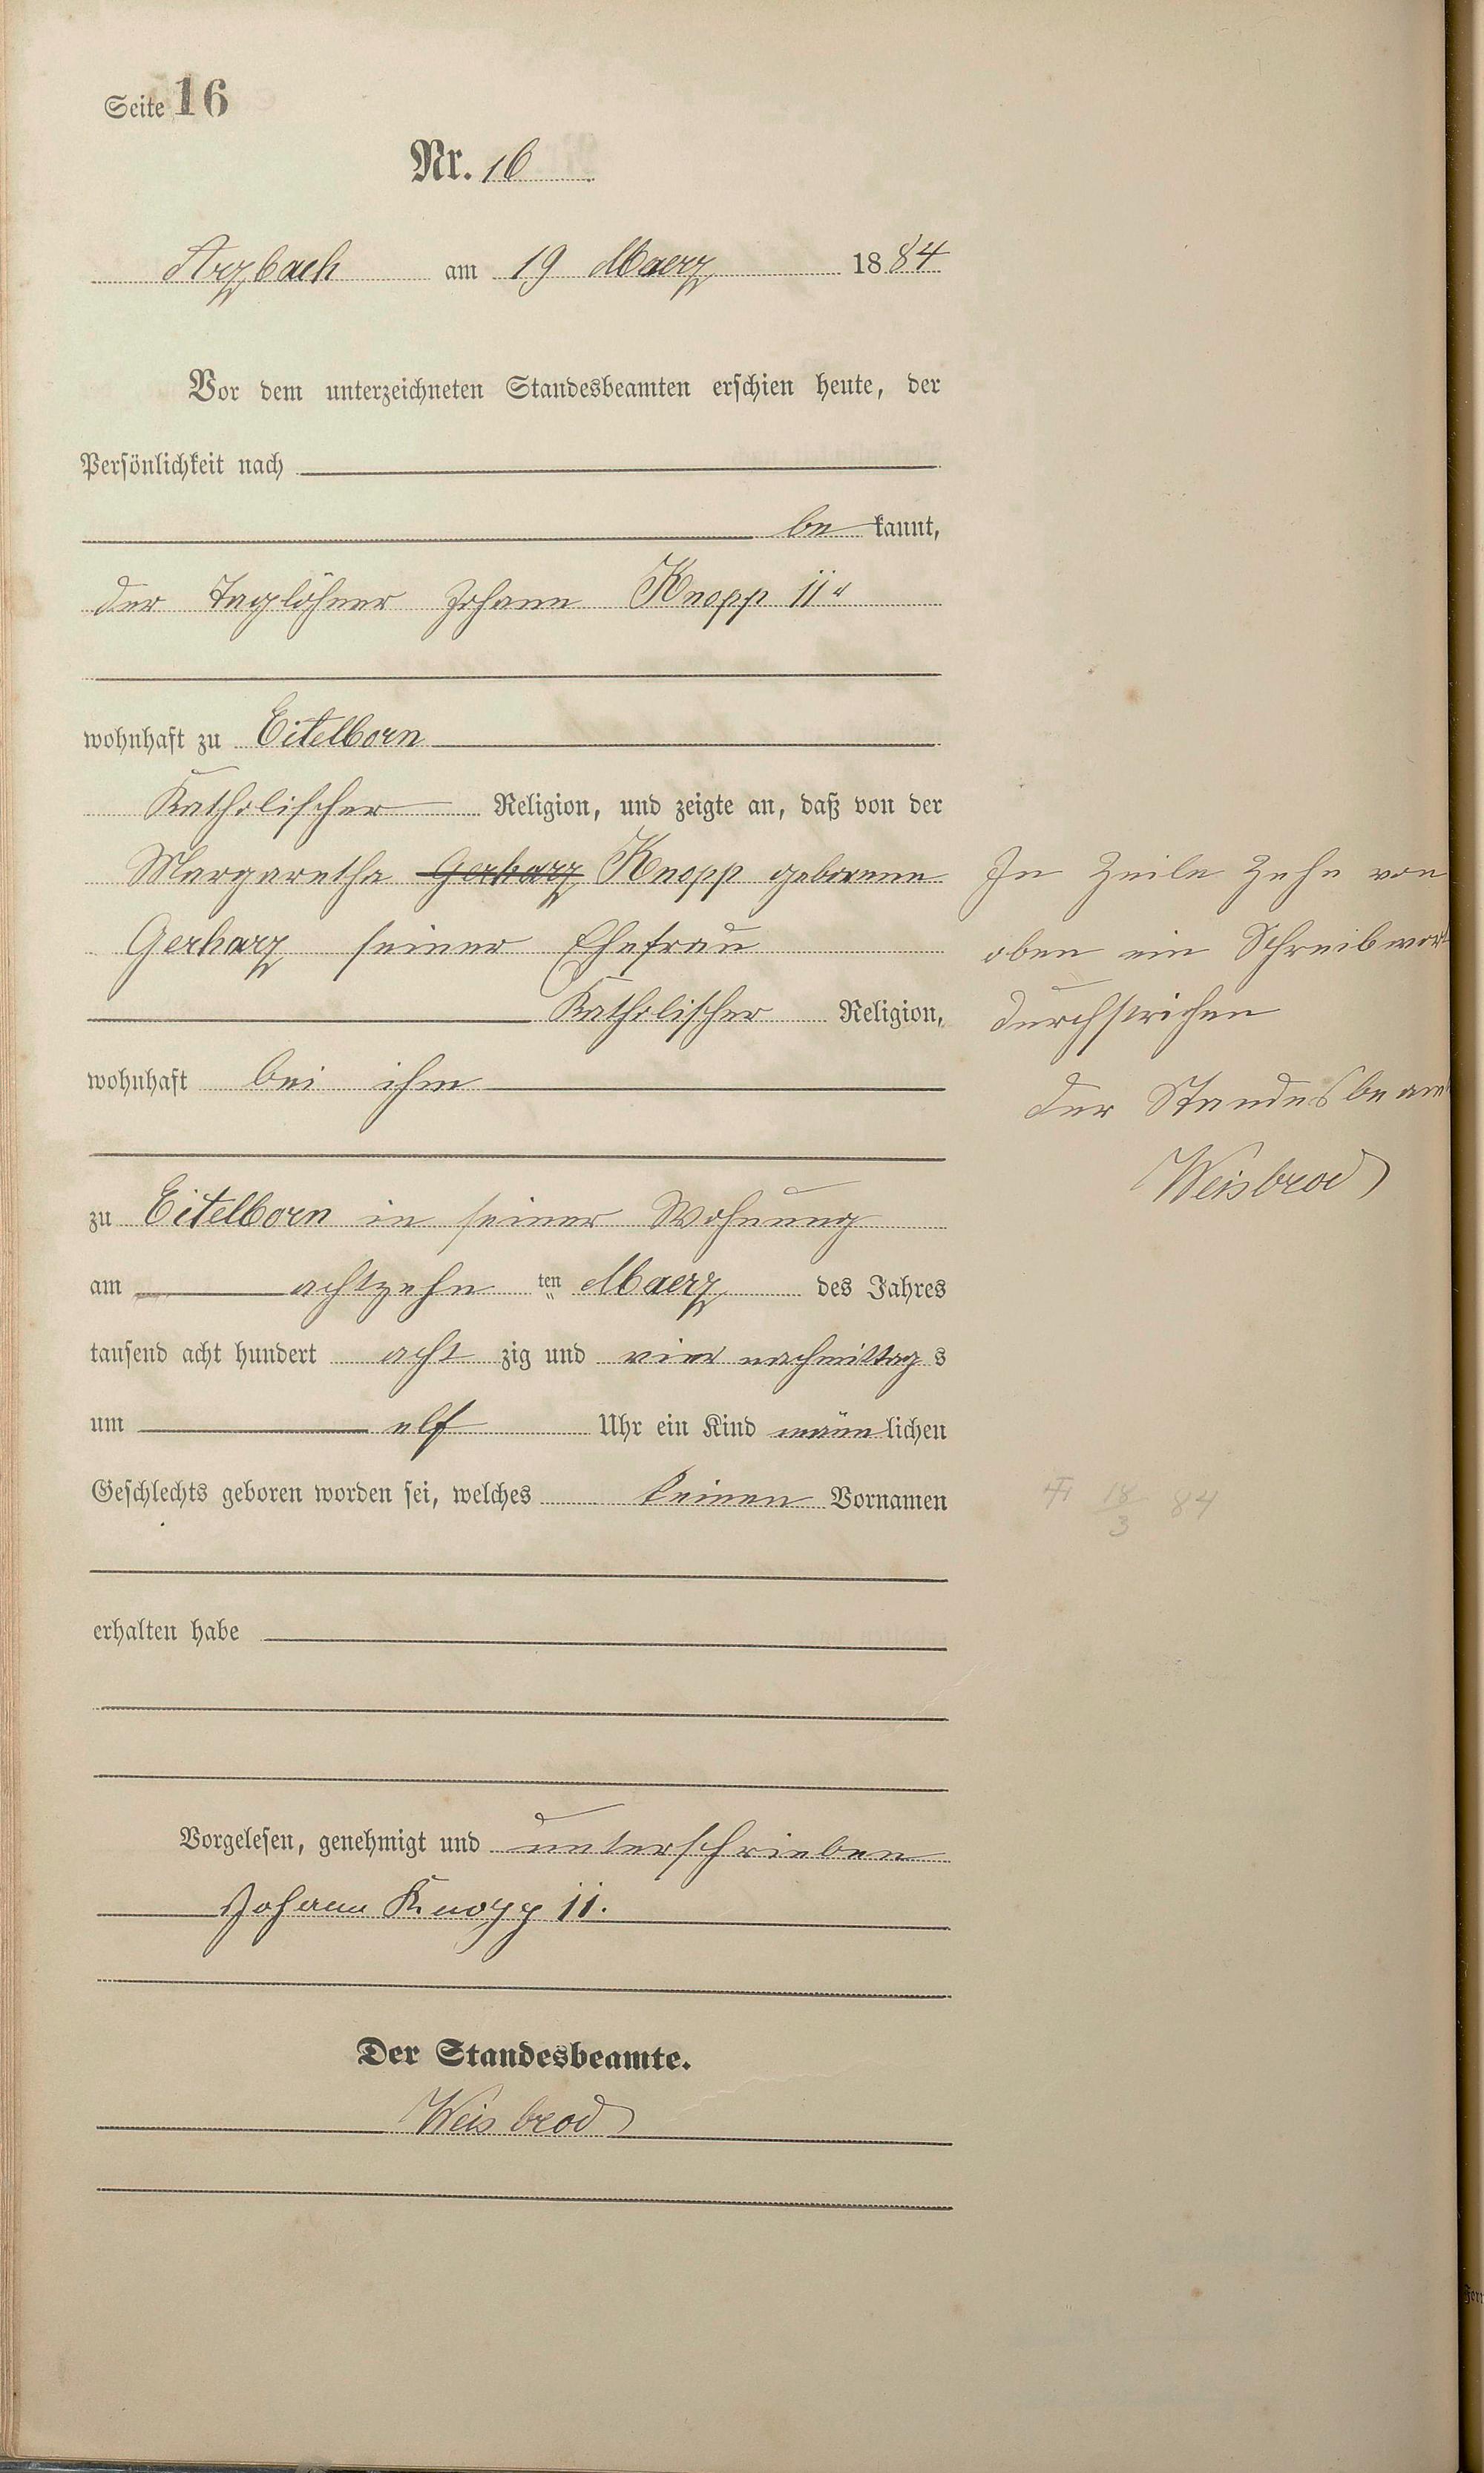 Seite 16
Nr. 16
Arzbach am 19 Maerz 1884
Vor dem unterzeichneten Standesbeamten erschien heute, der
Persönlichkeit nach
be kannt,
der Taglöhner Johann Knopp II r
wohnhaft zu Eitelborn
Katholischer Religion, und zeigte an, daß von der
Margaretha Gerharz Knopp geborenen
Gerharz seiner Ehefrau
Katholischer Religion,
wohnhaft bei ihm
zu Eitelborn in seiner Wohnung
am achtzehn ten Maerz des Jahres
tausend acht hundert acht zig und vier nachmittag s
um elf Uhr ein Kind männ lichen
Geschlechts geboren worden sei, welches keinen Vornamen
erhalten habe
Vorgelesen, genehmigt und unterschrieben
Johann Knopp II.
Der Standesbeamte.
Weisbrod
In Zeile Zehn von
oben ein Schreibwort
durchstrichen
der Standesbeamt
Weisbrod
18/3 84